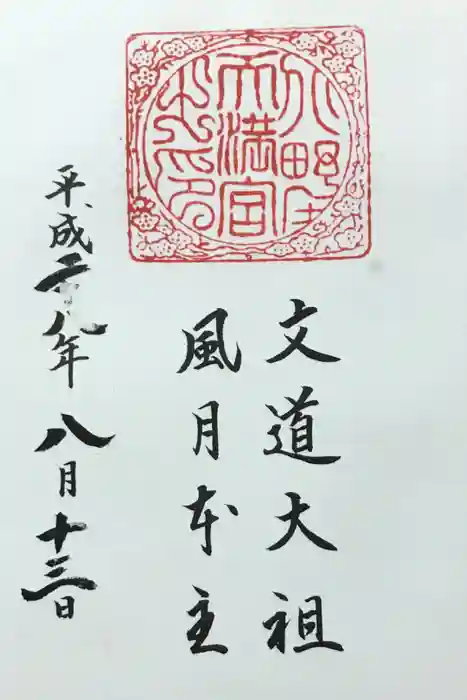 文道大祖
風月本主
平成二十八年八月十三日
天満宮